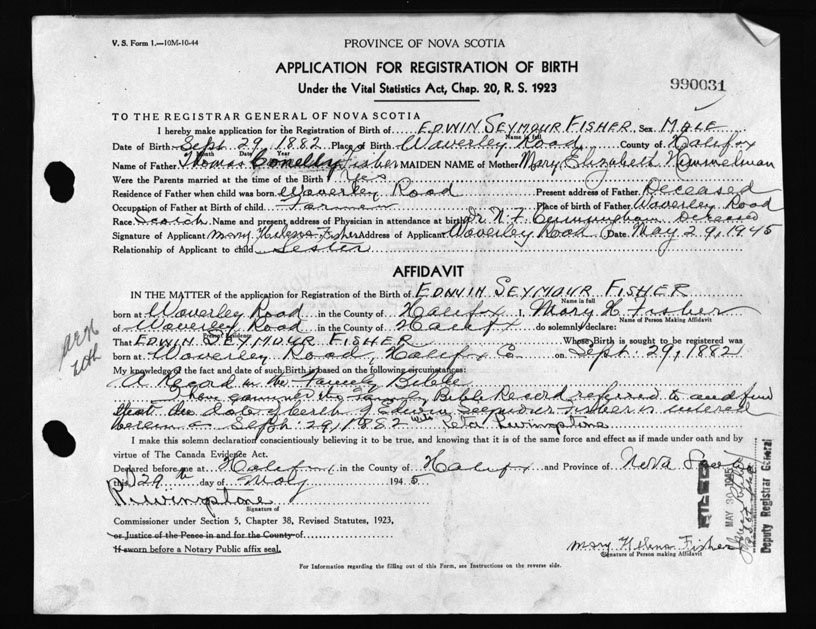 V. S. Form 1.—10M-10-44
PROVINCE OF NOVA SCOTIA
APPLICATION FOR REGISTRATION OF BIRTH
Under the Vital Statistics Act, Chap. 20, R. S. 1923
990031
TO THE REGISTRAR GENERAL OF NOVA SCOTIA
I hereby make application for the Registration of Birth of EDWIN SEYMOUR FISHER Sex MALE
Name in full
Date of Birth Sept 29, 1882 Place of Birth Waverley Road County of Halifax
Month Date Year
Name of Father Thomas Conelly Fisher MAIDEN NAME of Mother Mary Elizabeth Himmelman
Were the Parents married at the time of the Birth? Yes
Residence of Father when child was born Waverley Road Present address of Father Deceased
Occupation of Father at Birth of child Farmer Place of birth of Father Waverley Road
Race Scotch Name and present address of Physician in attendance at birth Dr N. F. Cunningham Deceased
Signature of Applicant Mary Helena Fisher Address of Applicant Waverley Road Date May 29, 1945
Relationship of Applicant to child Sister
AFFIDAVIT
IN THE MATTER of the application for Registration of the Birth of EDWIN SEYMOUR FISHER
Name in full
born at Waverley Road in the County of Halifax I, Mary H. Fisher
Name of Person Making Affidavit
of Waverley Road in the County of Halifax do solemnly declare:
That EDWIN SEYMOUR FISHER Whose Birth is sought to be registered was
born at Waverley Road, Halifax Co. on Sept. 29, 1882
My knowledge of the fact and date of such Birth is based on the following circumstances:
A Record in the Family Bible
I have examined the Family Bible Record referred to and find
that the date of birth of Edwin Seymour Fisher is entered
therein as Sept. 29, 1882 Peter Livingstone
I make this solemn declaration conscientiously believing it to be true, and knowing that it is of the same force and effect as if made under oath and by
virtue of The Canada Evidence Act.
Declared before me at Halifax in the County of Halifax and Province of Nova Scotia
this 29th day of May 1945
P. Livingstone
Signature of
Commissioner under Section 5, Chapter 38, Revised Statutes, 1923,
or Justice of the Peace in and for the County of
If sworn before a Notary Public affix seal.
Mary Helena Fisher
Signature of Person making Affidavit
For Information regarding the filling out of this Form, see Instructions on the reverse side.
MAY 30 1945
Deputy Registrar General